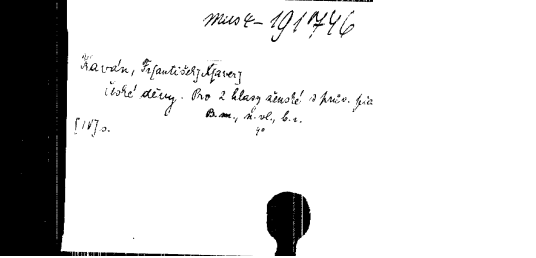 Mus 4 - 191746
Kaván, Fr[antišek] X[aver]
České děvy. Pro 2 hlasy ženské s prův. pia
B.m., n. vl., b.r.
4°
[IV] s.